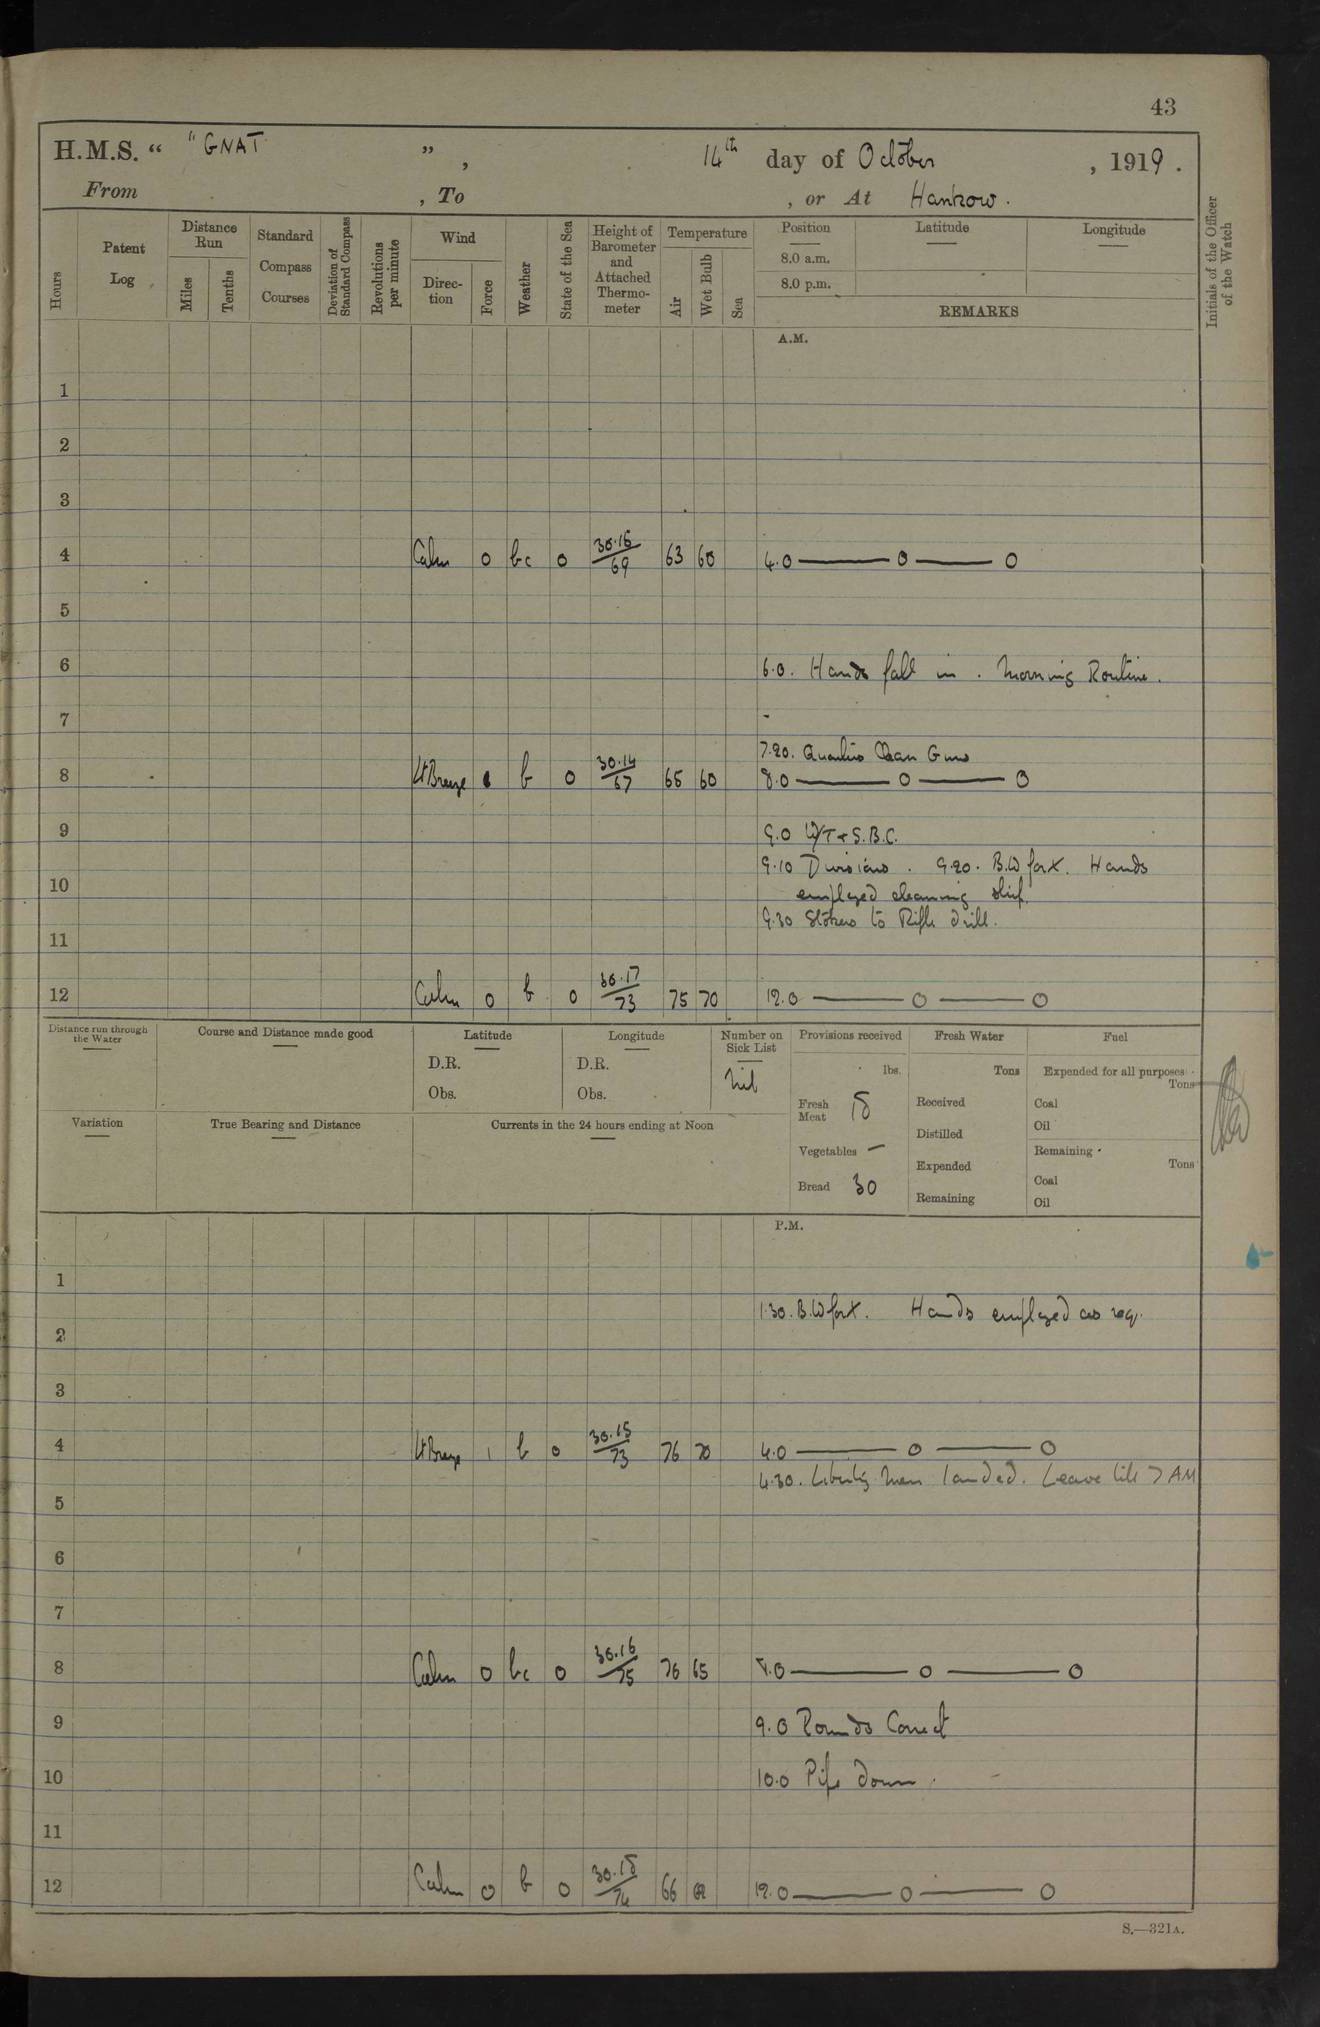 43
H.M.S. “ "GNAT ” , 14th day of October , 1919 .
From , To , or At Hankow .
Hours
Patent Log
Distance Run
Miles
Tenths
Standard Compass Courses
Deviation of Standard Compass
Revolutions per minute
Wind
Direction
Force
Weather
State of the Sea
Height of Barometer and Attached Thermometer
Temperature
Air
Wet Bulb
Sea
Position
8.0 a.m.
8.0 p.m.
Latitude
Longitude
REMARKS
Initials of the Officer of the Watch
A.M.
1
2
3
4 Calm 0 bc 0 30.16/69 63 60 4.0 — 0 — 0
5
6 6.0. Hands fall in . Morning Routine .
7
7.20. Quarters Clean Guns
8 Lt Breeze 1 b 0 30.14/67 65 60 8.0 — 0 — 0
9 9.0 W/T & S.B.C.
9.10 Divisions . 9.20. B.W for x. Hands
10 employed cleaning ship.
9.30 Stokers to Rifle drill.
11
12 Calm 0 b 0 30.17/73 75 70 12.0 — 0 — 0
Distance run through the Water
Course and Distance made good
Latitude
D.R.
Obs.
Longitude
D.R.
Obs.
Number on Sick List
Nil
Provisions received
lbs.
Fresh Meat 15
Vegetables —
Bread 30
Fresh Water
Tons
Received
Distilled
Expended
Remaining
Fuel
Expended for all purposes
Tons
Coal
Oil
Remaining
Tons
Coal
Oil
Variation
True Bearing and Distance
Currents in the 24 hours ending at Noon
P.M.
1
1.30. B.W for x. Hands employed as req.
2
3
4 Lt Breeze 1 b 0 30.15/73 76 70 4.0 — 0 — 0
4.30. Liberty men landed. Leave till 7 AM
5
6
7
8 Calm 0 bc 0 30.16/75 76 65 8.0 — 0 — 0
9 9.0 Rounds Correct
10 10.0 Pipe down .
11
12 Calm 0 b 0 30.18/74 66 12.0 — 0 — 0
S.—321A.